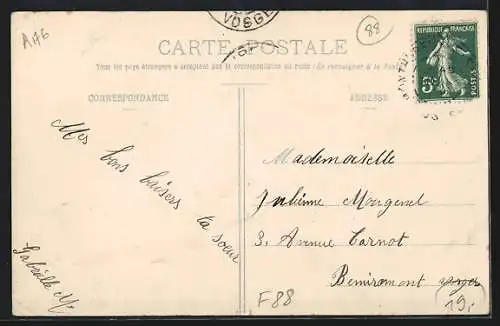 A46
VOSGES
88
CARTE POSTALE
Tous les pays étrangers n'acceptent pas la correspondance au recto (Se renseigner à la Poste)
CORRESPONDANCE
ADRESSE
REPUBLIQUE FRANÇAISE
5c
POSTES
Mes bons baisers ta soeur
Gabrielle M.
Mademoiselle
Julienne Mougenel
3, Avenue Carnot
Remiremont Vosges
F88
19,-